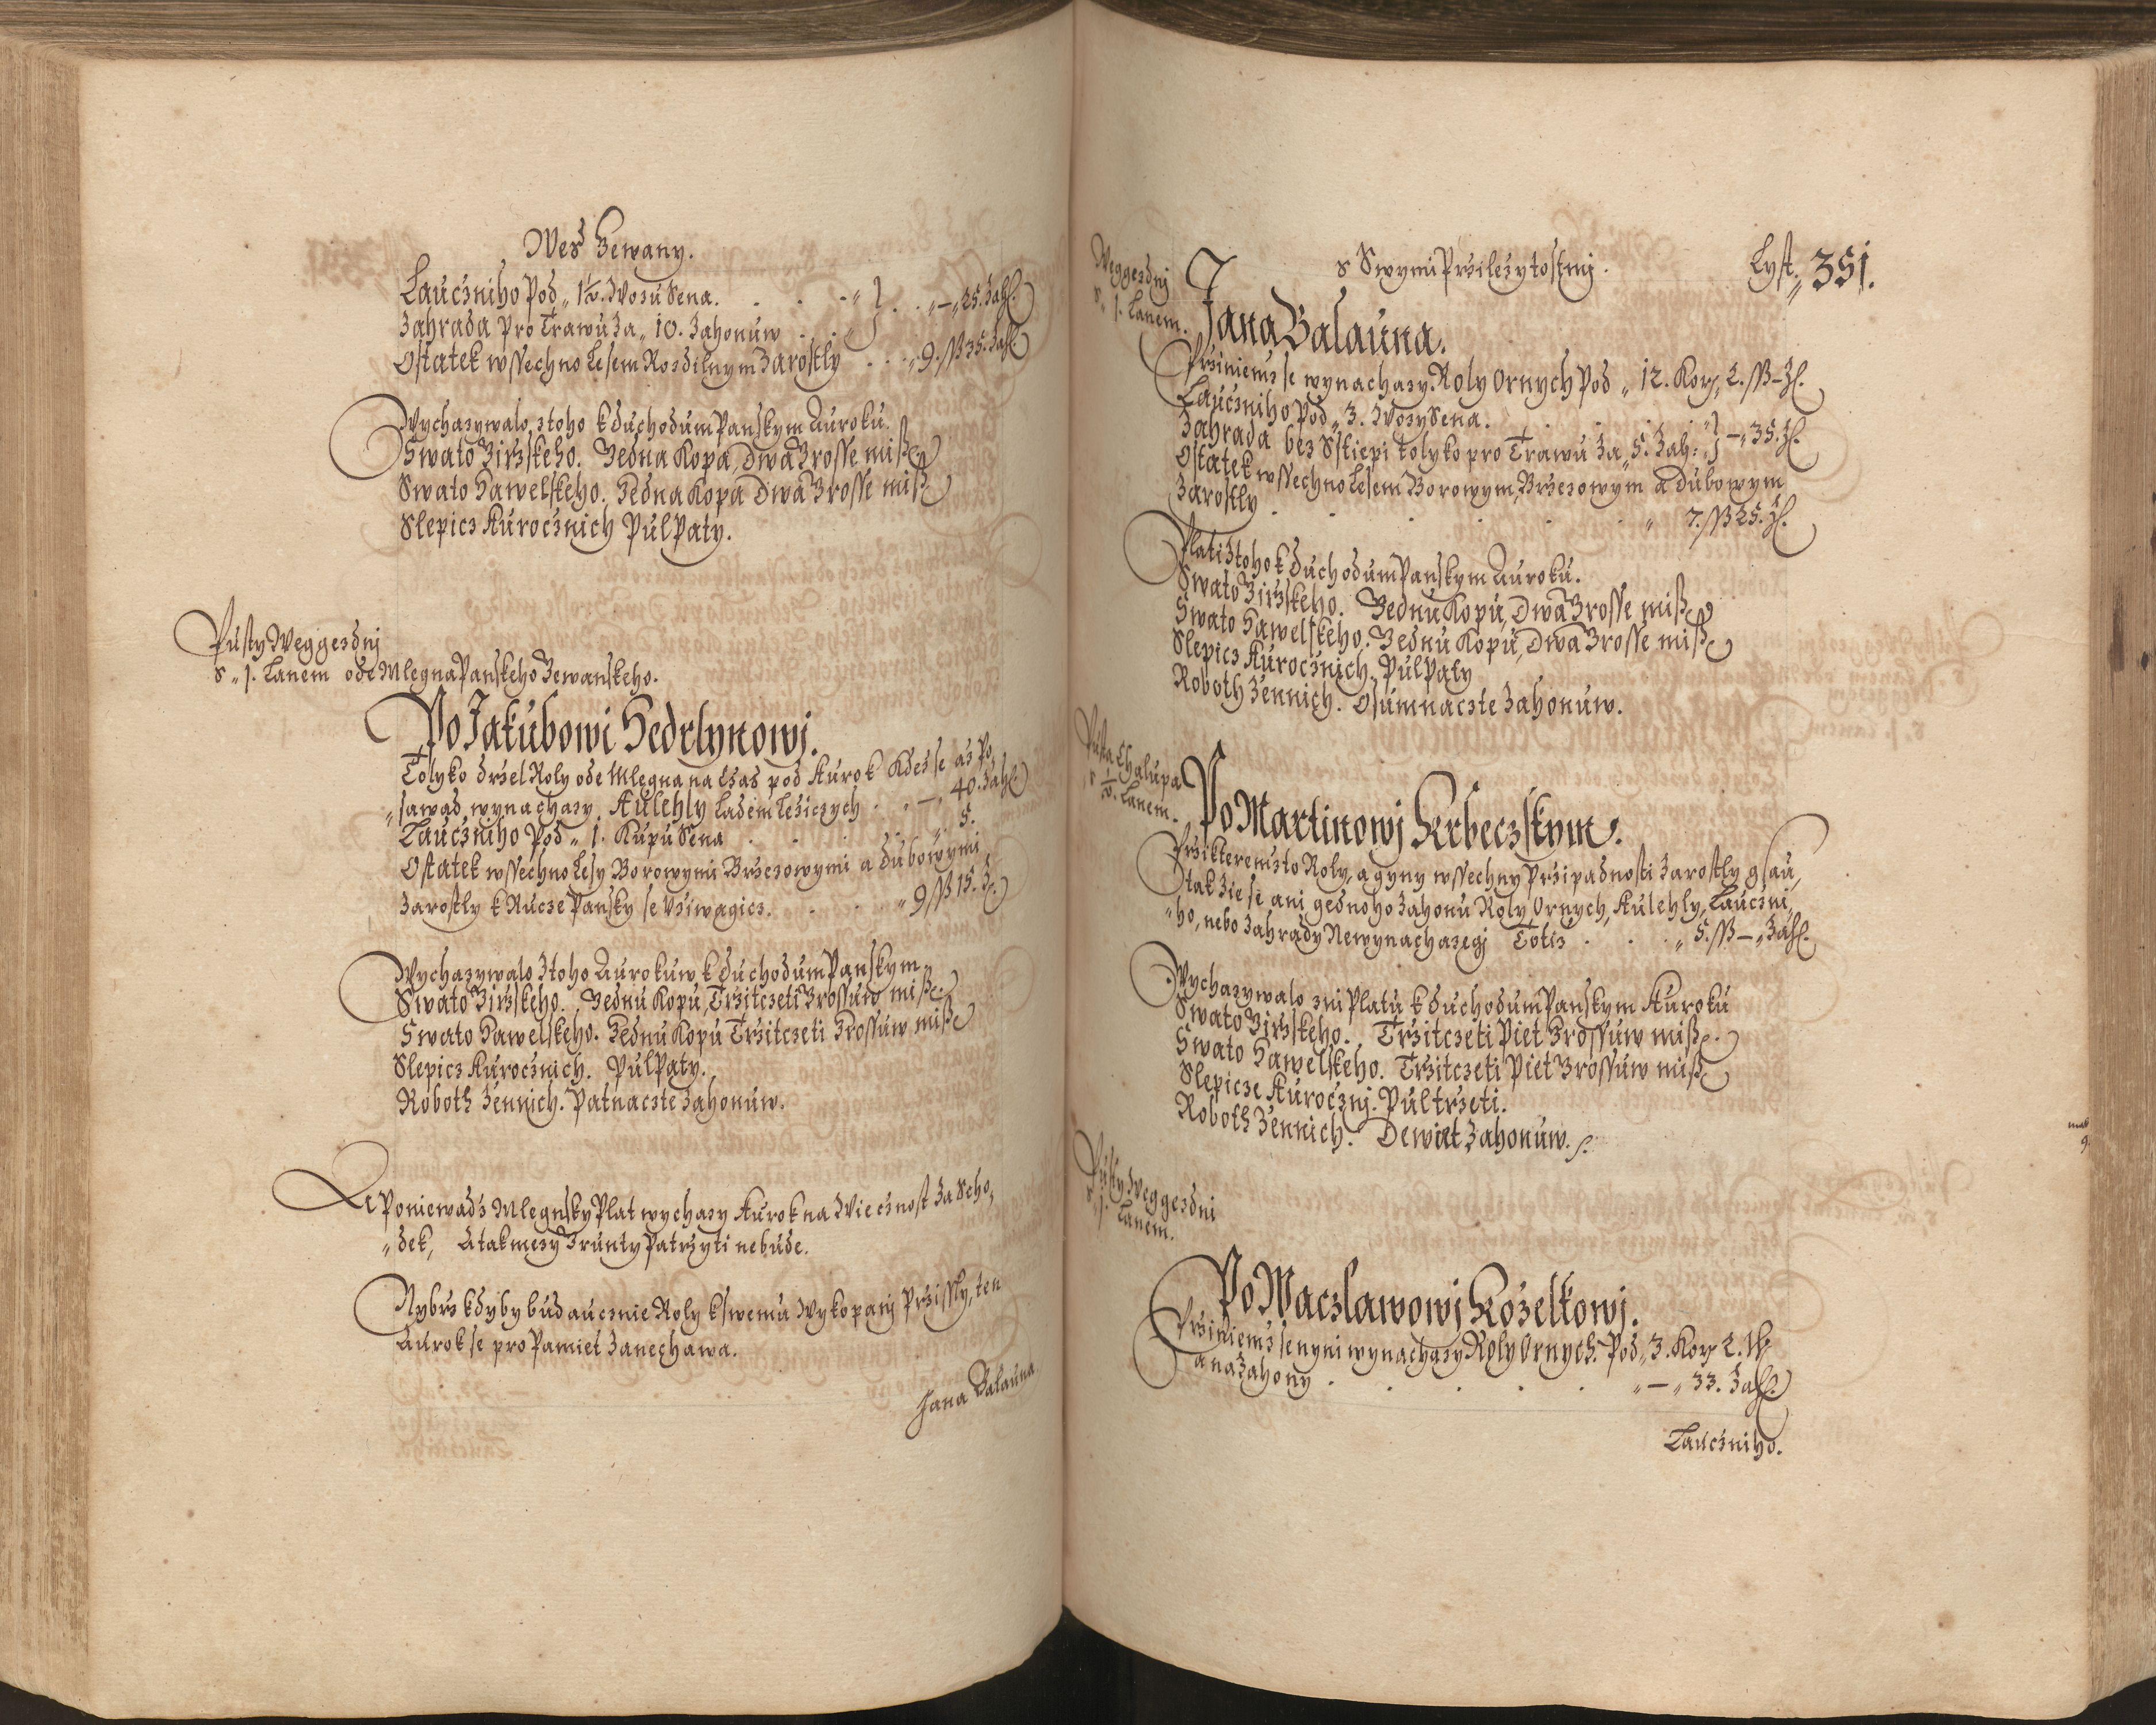 Wes Gewany.
Laucżniho Pod „ 1½. Wozu Sena. . . . „ — „ 25. Zah.
Zahrada pro Trawu Za „ 10. Zahonuw . .
Ostatek wssechno Lesem Rozdilnym Zarostly . . „ 9. ß 35. Zah.
Wychazywalo z toho k duchodum Panskym Auroku.
Swato Girżskeho. Gedna Kopa, Dwa Grosse miß.
Swato Hawelskeho. Gedna Kopa Dwa Grosse miß.
Slepicz Aurocżnich Pul Paty.
Pusty Weggezdnj
s „ 1. Lanem ode Mlegna Panskeho Gewanskeho.
Po Jakubowi Hedrlynowj.
Tolyko drżel Roly ode Mlegna na Cżas pod Aurok Kdez se az Po„
„sawad wynachazy. Aulehly Ladem Leziczych . . „ — „ 40. Zah.
Laucżniho Pod „ 1. Kupu Sena . . . . „ 5.
Ostatek wssechno Lesy Borowymi Brżezowymi a dubowymi
Zarostly k Rucze Pansky seUżiwagicz. . . „ 9 ß 15. Z.
Wychazywalo Z toho Aurokuw k duchodum Panskym.
Swato Girżskeho. Gednu Kopu, Trżitczeti Grossuw miß.
Swato Hawelskeho. Gednu Kopu Trżitczeti Grossuw miß.
Slepicz Aurocżnich. Pul Paty.
Roboth Żennich. Patnaczte Zahonuw.
A Poniewadż Mlegnsky Plat wychazy Aurok na Wiecżnost Za Scho„
„dek, A tak mezy Grunty Patrżyti nebude.
Nybrż kdyby budaucżnie Roly k swemu Wykopanj Prżissly, ten
Aurok se pro Pamiet Zanechawa.
Jana Balauna.
s Swymi Prżilezytostmj. Lyst „ 351.
Weggezdnj
s „ 1. Lanem.
Jana Balauna.
Prżiniemż se wynachazy. Roly Ornych Pod „ 12. Kor, 2. ß – Z.
Laucżniho Pod „ 3. Wozy Sena. . . . „ — „ 35. Z.
Zahrada bez Sstiepi tolyko pro Trawu Za „ 5. Zah:
Ostatek wssechno Lesem Borowym, Brżezowym a dubowym
Zarostly . . . . . „ 7. ß 25. Z.
Plati Z toho k duchodum Panskym Auroku.
Swato Girżskeho. Gednu Kopu, Dwa Grosse miß.
Swato Hawelskeho. Gednu Kopu, Dwa Grosse miß.
Slepicz Aurocżnich. Pul Paty
Roboth Żennich. Osumnaczte Zahonuw.
Pusta Chalupa
s ½. Lanem.
Po Martinowj Krbeczskym.
Prżikteremżto Roly, a gyny wssechny Prżipadnosti Zarostly gsau,
tak Zie se ani gednoho Zahonu Roly Ornych, Aulehly, Laucżni„
„ho, nebo Zahrady Newynachazegj Totiż . . „ 5. ß — „ Zah.
Wychazywalo zni Platu k duchodum Panskym Auroku
Swato Girżskeho. Trżitczeti Piet Grossuw miß.
Swato Hawelskeho. Trżitczeti Piet Grossuw miß.
Slepicze Aurocżnj. Pul trżeti.
Roboth Żennich. Dewiet Zahonuw.
Pusty Weggezdni
s „ 1. Lanem.
Po Waczlawowj Kozelkowj.
Prżiniemż se nyni wynachazy Roly Ornych. Pod „ 3. Kor 2.
a na Zahony . . . . . „ — „ 33. Zah.
Laucżniho.